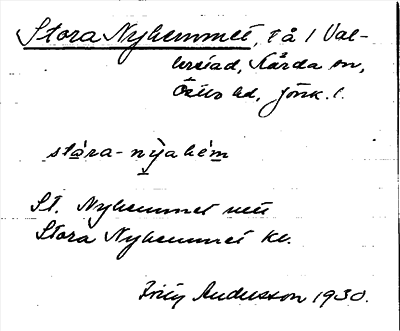 Stora Nyhemmet, på 1 Val-
lerstad, Kårda sn,
Östbo hd, Jönk. l.
stóra-nỳahém
St. Nyhemmet
Stora Nyhemmet kl.
Andersson 1930.